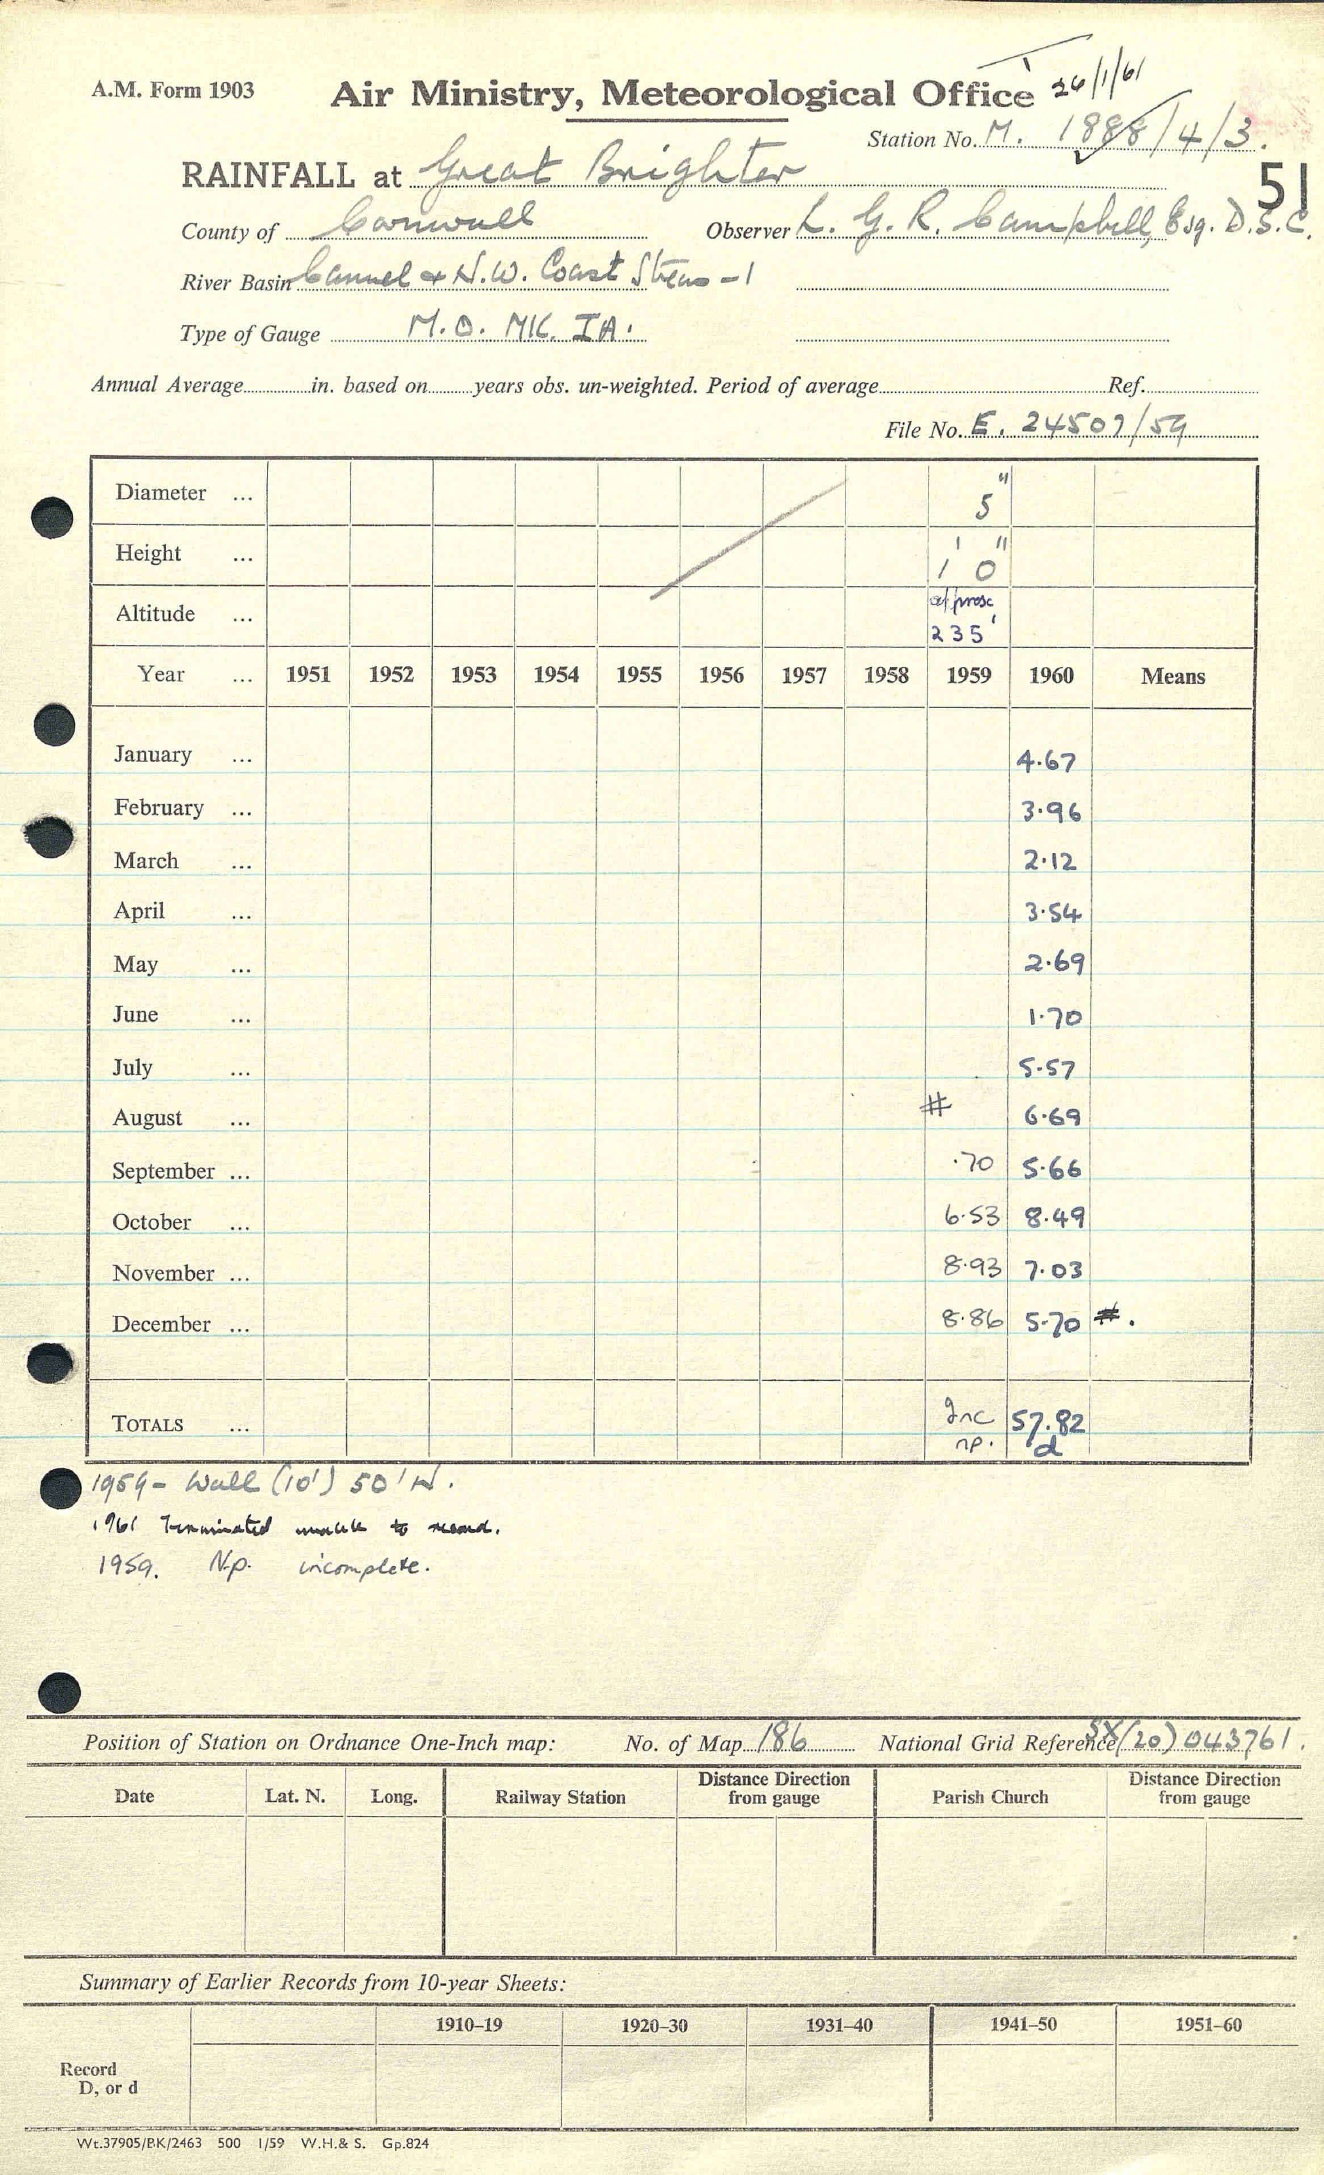 26/1/61
A.M. Form 1903 Air Ministry, Meteorological Office
Station No. M. 1888/4/3.
RAINFALL at Great Brighter
51
County of Cornwall Observer L. G. R. Campbell, Esq. D.S.C.
River Basin Gannel & N.W. Coast Streams - 1
Type of Gauge M.O. MK. IA.
Annual Average in. based on years obs. un-weighted. Period of average Ref.
File No. E. 24507/59
Diameter ... 5"
Height ... 1' 0"
Altitude ... approx 235'
Year ... 1951 1952 1953 1954 1955 1956 1957 1958 1959 1960 Means
January ... 4.67
February ... 3.96
March ... 2.12
April ... 3.54
May ... 2.69
June ... 1.70
July ... 5.57
August ... # 6.69
September ... .70 5.66
October ... 6.53 8.49
November ... 8.93 7.03
December ... 8.86 5.70 #.
TOTALS ... Inc np. 57.82 d
1959 - Wall (10') 50' N.
1961 Terminated unable to record.
1959. N.p. incomplete.
Position of Station on Ordnance One-Inch map: No. of Map 186 National Grid Reference SX(20) 043761.
Date Lat. N. Long. Railway Station Distance Direction from gauge Parish Church Distance Direction from gauge
Summary of Earlier Records from 10-year Sheets:
1910–19 1920–30 1931–40 1941–50 1951–60
Record
D, or d
Wt.37905/BK/2463 500 1/59 W.H.& S. Gp.824